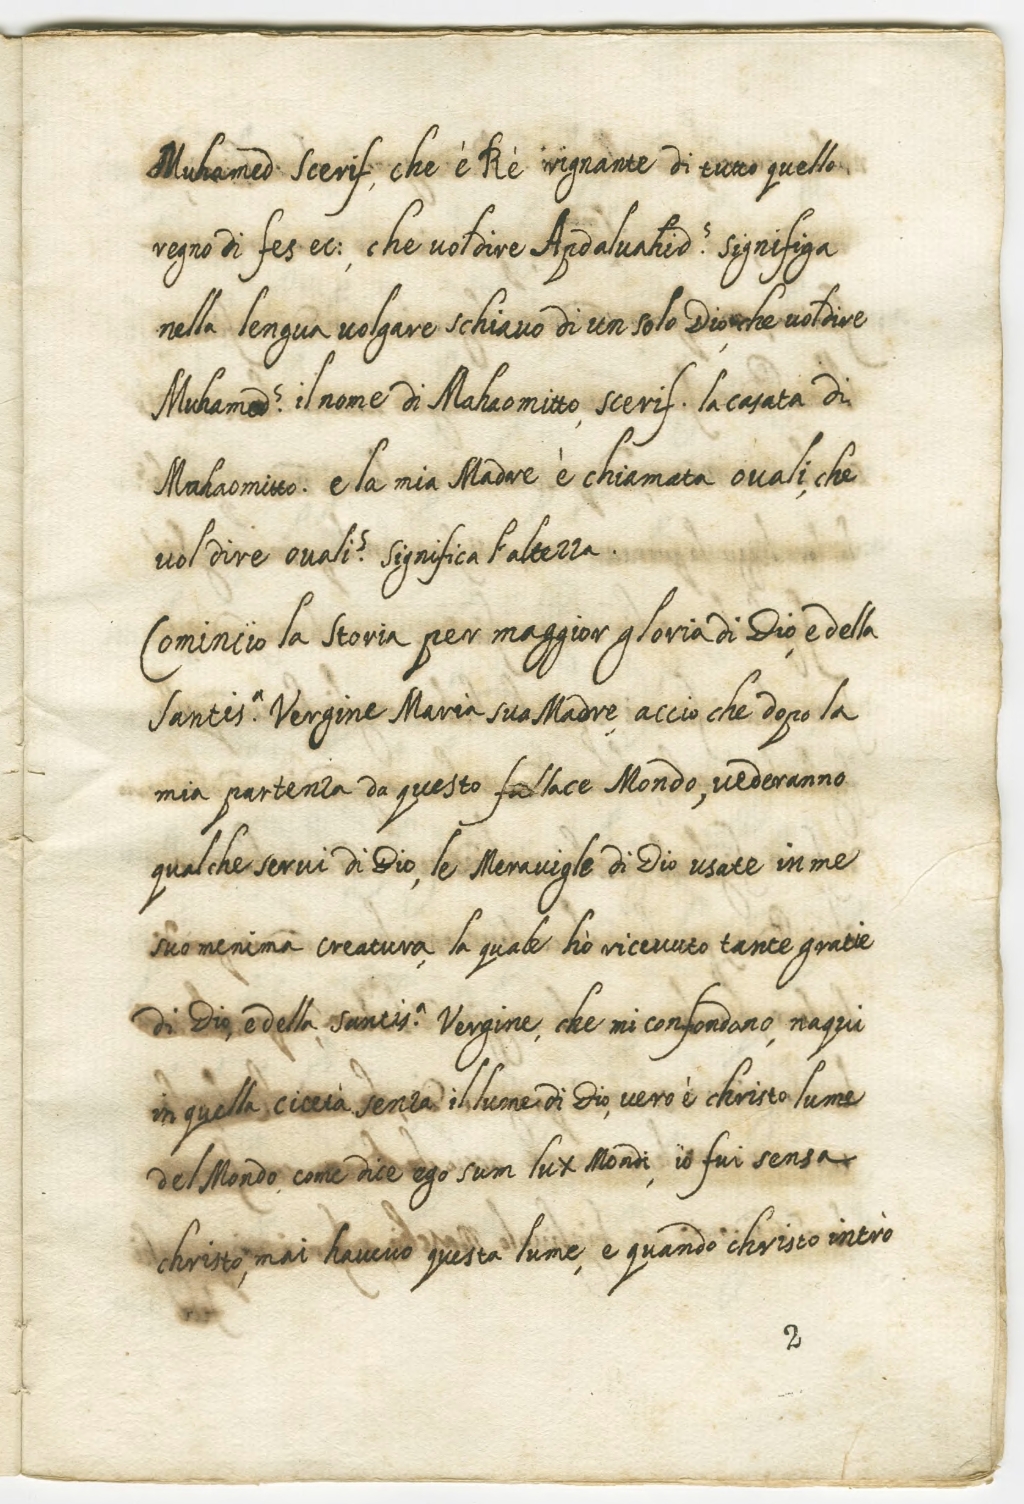 Muhamed Scerif, che è Rè rignante di tutto quello
regno di fes ec:, che uol dire Apdaluahid? signifiga
nella lengua uolgare schiauo di un solo Dio, che uol dire
Muhamed? il nome di Mahaomitto, scerif. la casata di
Mahaomitto. e la mia Madre è chiamata ouali, che
uol dire ouali? significa l'altezza.
Cominçio la Storia per maggior gloria di Dio, e della
Santis.ª Vergine Maria sua Madre, accio che dopo la
mia partenza da questo fallace Mondo, uederanno
qualche serui di Dio, le Merauigle di Dio usate in me
suo menima creatura, la quale hò riceuuto tante gratie
di Dio, e della santis.ª Vergine, che mi confondono, naqui
in quella cictà senza il lume di Dio, uero è christo lume
del Mondo, come dice ego sum lux Mondi, iò fui sensa
christo, mai haueuo questa lume, e quando christo intrò
2